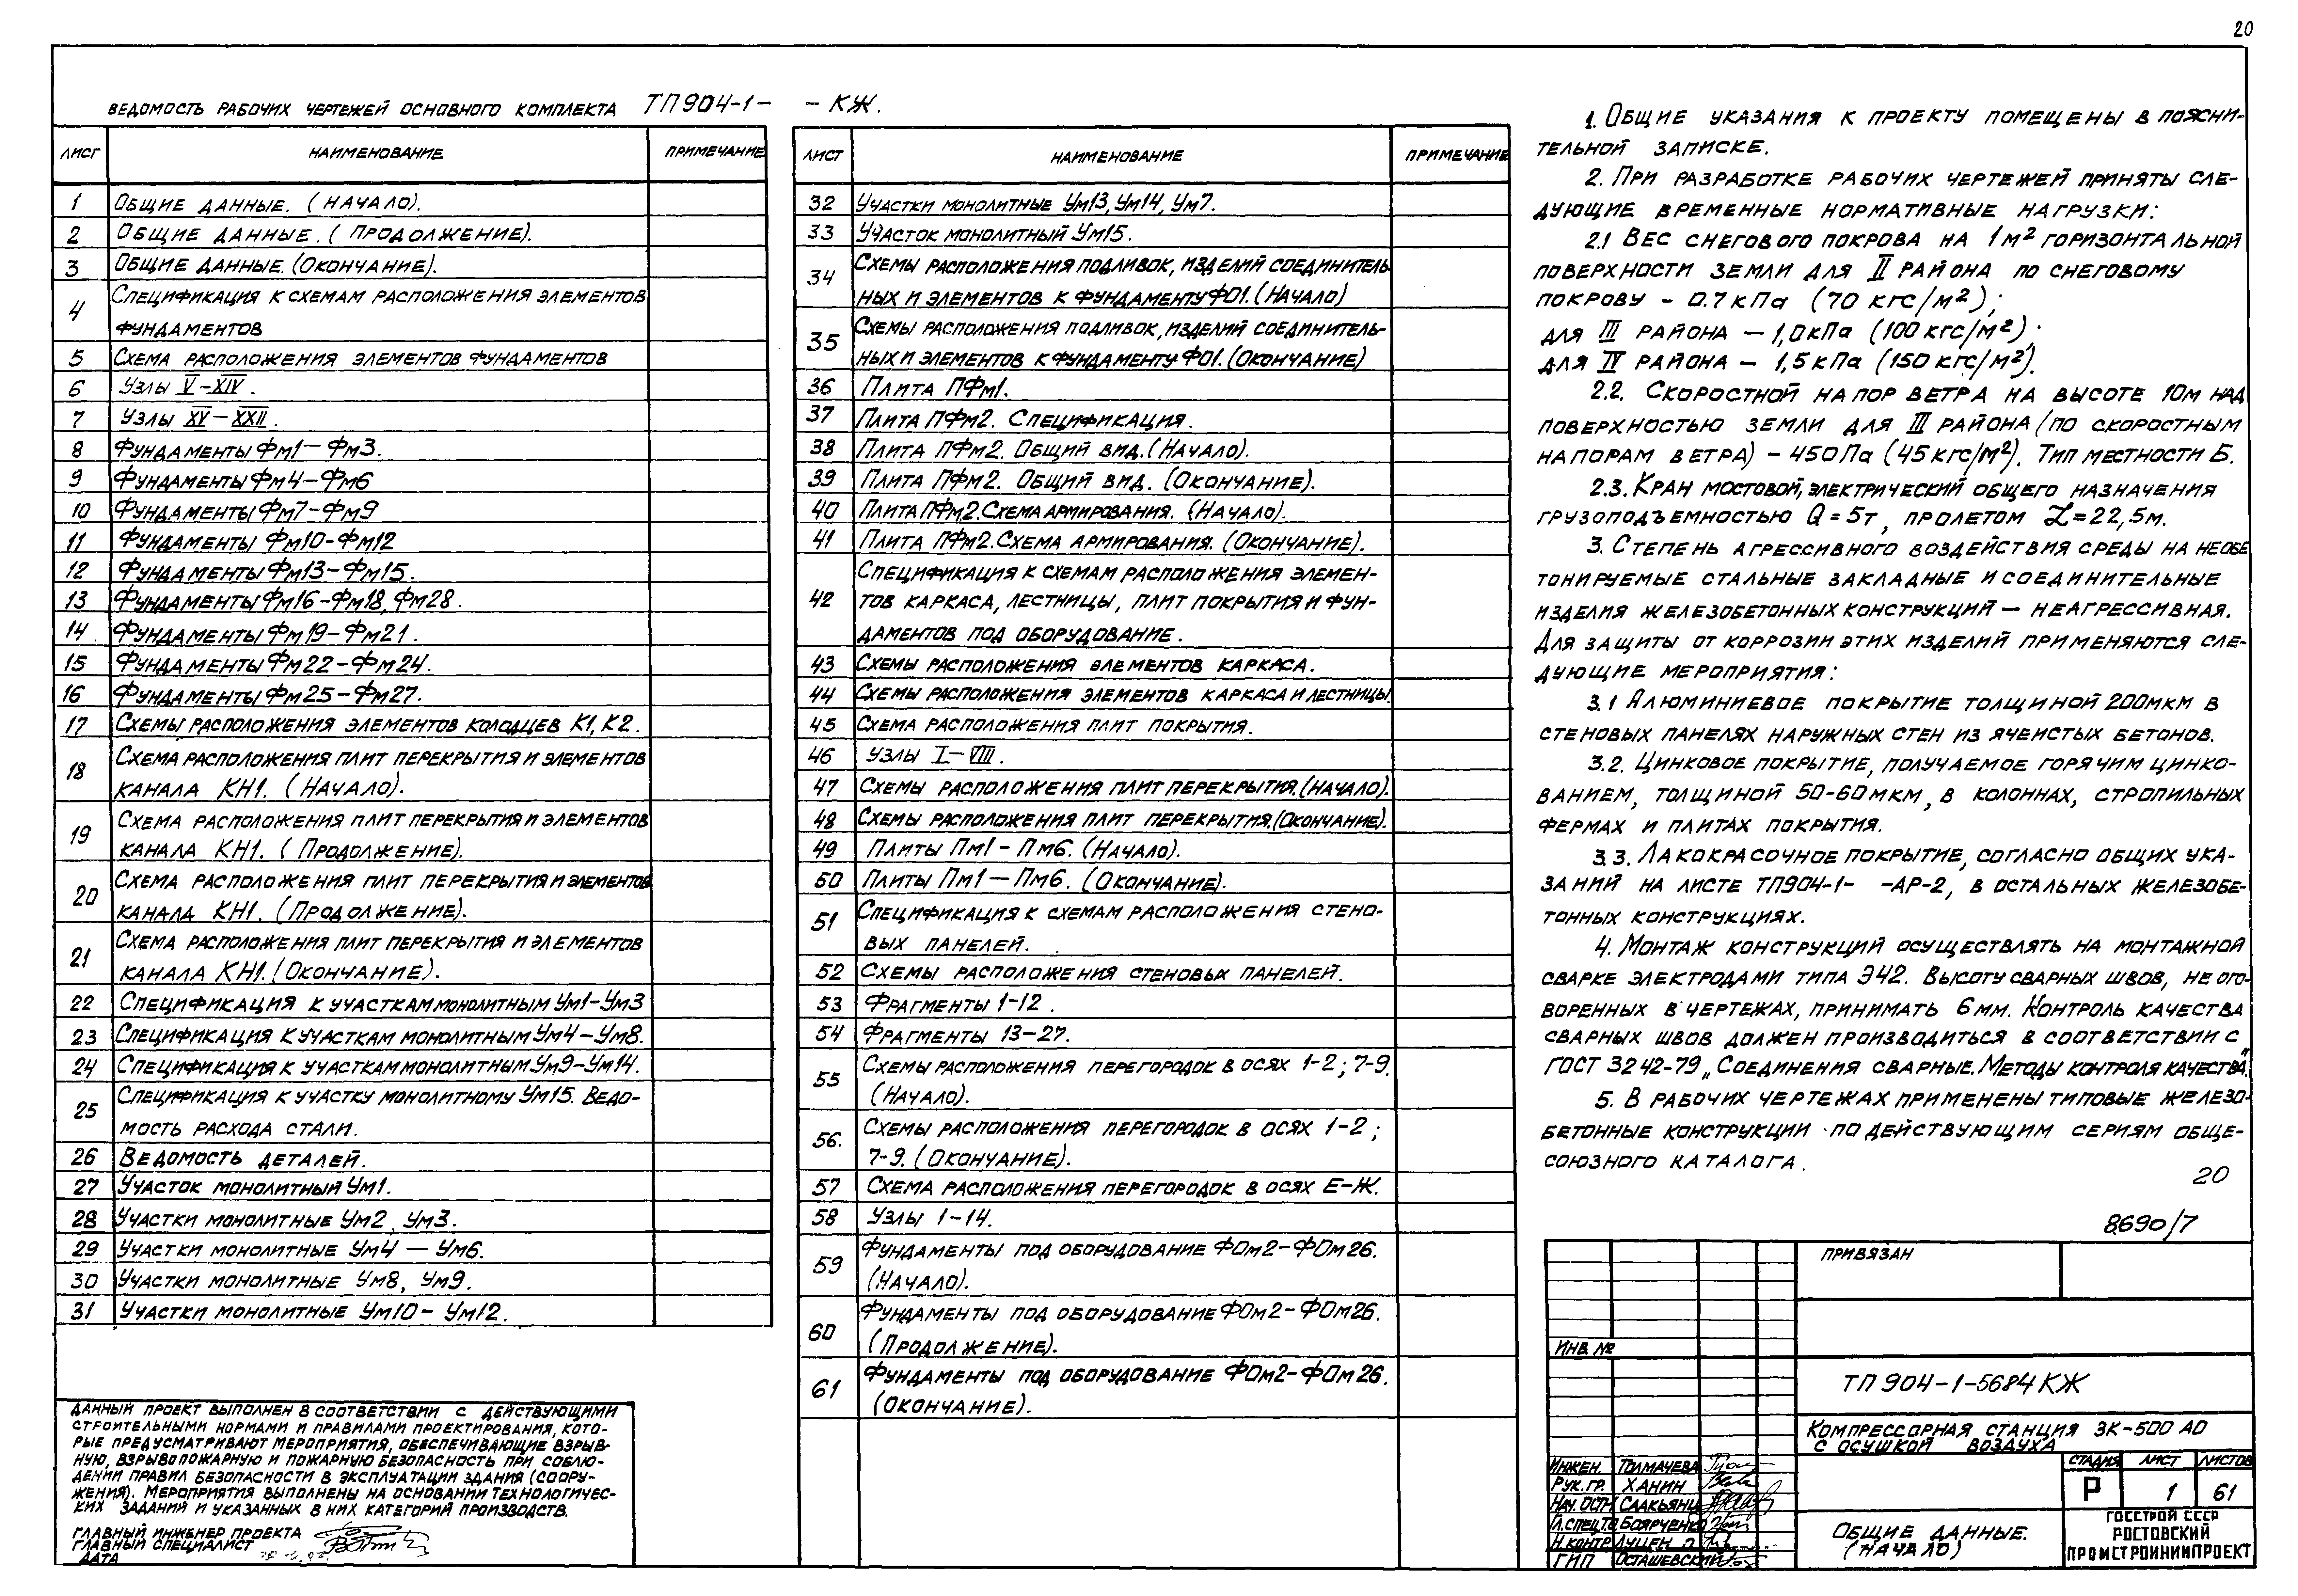 20
ВЕДОМОСТЬ РАБОЧИХ ЧЕРТЕЖЕЙ ОСНОВНОГО КОМПЛЕКТА ТП904-1- -КЖ.
ЛИСТ НАИМЕНОВАНИЕ ПРИМЕЧАНИЕ
1 Общие данные. (Начало).
2 Общие данные. (Продолжение).
3 Общие данные. (Окончание).
4 Спецификация к схемам расположения элементов
фундаментов
5 Схема расположения элементов фундаментов
6 Узлы V-XIV.
7 Узлы XV-XXII.
8 Фундаменты Фм1-Фм3.
9 Фундаменты Фм4-Фм6
10 Фундаменты Фм7-Фм9
11 Фундаменты Фм10-Фм12
12 Фундаменты Фм13-Фм15.
13 Фундаменты Фм16-Фм18, Фм28.
14. Фундаменты Фм19-Фм21.
15 Фундаменты Фм22-Фм24.
16 Фундаменты Фм25-Фм27.
17 Схемы расположения элементов колодцев К1, К2.
18 Схема расположения плит перекрытия и элементов
канала КН1. (Начало).
19 Схема расположения плит перекрытия и элементов
канала КН1. (Продолжение).
20 Схема расположения плит перекрытия и элементов
канала КН1. (Продолжение).
21 Схема расположения плит перекрытия и элементов
канала КН1. (Окончание).
22 Спецификация к участкам монолитным Ум1-Ум3
23 Спецификация к участкам монолитным Ум4-Ум8.
24 Спецификация к участкам монолитным Ум9-Ум14.
25 Спецификация к участку монолитному Ум15. Ведо-
мость расхода стали.
26 Ведомость деталей.
27 Участок монолитный Ум1.
28 Участки монолитные Ум2, Ум3.
29 Участки монолитные Ум4 - Ум6.
30 Участки монолитные Ум8, Ум9.
31 Участки монолитные Ум10- Ум12.
ДАННЫЙ ПРОЕКТ ВЫПОЛНЕН В СООТВЕТСТВИИ С ДЕЙСТВУЮЩИМИ
СТРОИТЕЛЬНЫМИ НОРМАМИ И ПРАВИЛАМИ ПРОЕКТИРОВАНИЯ, КОТО-
РЫЕ ПРЕДУСМАТРИВАЮТ МЕРОПРИЯТИЯ, ОБЕСПЕЧИВАЮЩИЕ ВЗРЫВ-
НУЮ, ВЗРЫВОПОЖАРНУЮ И ПОЖАРНУЮ БЕЗОПАСНОСТЬ ПРИ СОБЛЮ-
ДЕНИИ ПРАВИЛ БЕЗОПАСНОСТИ В ЭКСПЛУАТАЦИИ ЗДАНИЯ (СООРУ-
ЖЕНИЯ). МЕРОПРИЯТИЯ ВЫПОЛНЕНЫ НА ОСНОВАНИИ ТЕХНОЛОГИЧЕС-
КИХ ЗАДАНИЙ И УКАЗАННЫХ В НИХ КАТЕГОРИЙ ПРОИЗВОДСТВ.
ГЛАВНЫЙ ИНЖЕНЕР ПРОЕКТА
ГЛАВНЫЙ СПЕЦИАЛИСТ
ДАТА
ЛИСТ НАИМЕНОВАНИЕ ПРИМЕЧАНИЕ
32 Участки монолитные Ум13, Ум14, Ум7.
33 Участок монолитный Ум15.
34 Схемы расположения подливок, изделий соединитель
ных и элементов к фундаменту ФО1. (Начало)
35 Схемы расположения подливок, изделий соединитель-
ных и элементов к фундаменту ФО1. (Окончание)
36 Плита ПФм1.
37 Плита ПФм2. Спецификация.
38 Плита ПФм2. Общий вид. (Начало).
39 Плита ПФм2. Общий вид. (Окончание).
40 Плита ПФм2. Схема армирования. (Начало).
41 Плита ПФм2. Схема армирования. (Окончание).
42 Спецификация к схемам расположения элемен-
тов каркаса, лестницы, плит покрытия и фун-
даментов под оборудование.
43 Схемы расположения элементов каркаса.
44 Схемы расположения элементов каркаса и лестницы.
45 Схема расположения плит покрытия.
46 Узлы I-VIII.
47 Схемы расположения плит перекрытия. (Начало).
48 Схемы расположения плит перекрытия. (Окончание).
49 Плиты Пм1 - Пм6. (Начало).
50 Плиты Пм1 - Пм6. (Окончание).
51 Спецификация к схемам расположения стено-
вых панелей.
52 Схемы расположения стеновых панелей.
53 Фрагменты 1-12.
54 Фрагменты 13-27.
55 Схемы расположения перегородок в осях 1-2; 7-9.
(Начало).
56. Схемы расположения перегородок в осях 1-2;
7-9. (Окончание).
57 Схема расположения перегородок в осях Е-Ж.
58 Узлы 1-14.
59 Фундаменты под оборудование ФОм2-ФОм26.
(Начало).
60 Фундаменты под оборудование ФОм2-ФОм26.
(Продолжение).
61 Фундаменты под оборудование ФОм2-ФОм26.
(Окончание).
1. Общие указания к проекту помещены в поясни-
тельной записке.
2. При разработке рабочих чертежей приняты сле-
дующие временные нормативные нагрузки:
2.1 Вес снегового покрова на 1м² горизонтальной
поверхности земли для II района по снеговому
покрову - 0.7 кПа (70 кгс/м²);
для III района - 1,0 кПа (100 кгс/м²);
для IV района - 1,5 кПа (150 кгс/м²).
2.2. Скоростной напор ветра на высоте 10м над
поверхностью земли для III района (по скоростным
напорам ветра) - 450 Па (45 кгс/м²). Тип местности Б.
2.3. Кран мостовой, электрический общего назначения
грузоподъемностью Q = 5т, пролетом L = 22,5м.
3. Степень агрессивного воздействия среды на необе
тонируемые стальные закладные и соединительные
изделия железобетонных конструкций - неагрессивная.
Для защиты от коррозии этих изделий применяются сле-
дующие мероприятия:
3.1 Алюминиевое покрытие толщиной 200мкм в
стеновых панелях наружных стен из ячеистых бетонов.
3.2. Цинковое покрытие, получаемое горячим цинко-
ванием, толщиной 50-60мкм, в колоннах, стропильных
фермах и плитах покрытия.
3.3. Лакокрасочное покрытие, согласно общих ука-
заний на листе ТП904-1- -АР-2, в остальных железобе-
тонных конструкциях.
4. Монтаж конструкций осуществлять на монтажной
сварке электродами типа Э42. Высоту сварных швов, не ого-
воренных в чертежах, принимать 6 мм. Контроль качества
сварных швов должен производиться в соответствии с
ГОСТ 3242-79 „Соединения сварные. Методы контроля качества".
5. В рабочих чертежах применены типовые железо-
бетонные конструкции по действующим сериям обще-
союзного каталога.
20
8690/7
ПРИВЯЗАН
ИНВ. №
ТП 904-1-5684 КЖ
Компрессорная станция 3К-500 АО
с осушкой воздуха
СТАДИЯ ЛИСТ ЛИСТОВ
Р 1 61
Общие данные.
(Начало)
ГОССТРОЙ СССР
РОСТОВСКИЙ
ПРОМСТРОЙНИИПРОЕКТ
ИНЖЕН. ТОЛМАЧЕВА
РУК. ГР. ХАНИН
НАЧ. ОСТН СААКЬЯНЦ
ГЛ. СПЕЦ. ТО БОЯРЧЕНКО
Н. КОНТР.
ГИП ОСТАШЕВСКИЙ